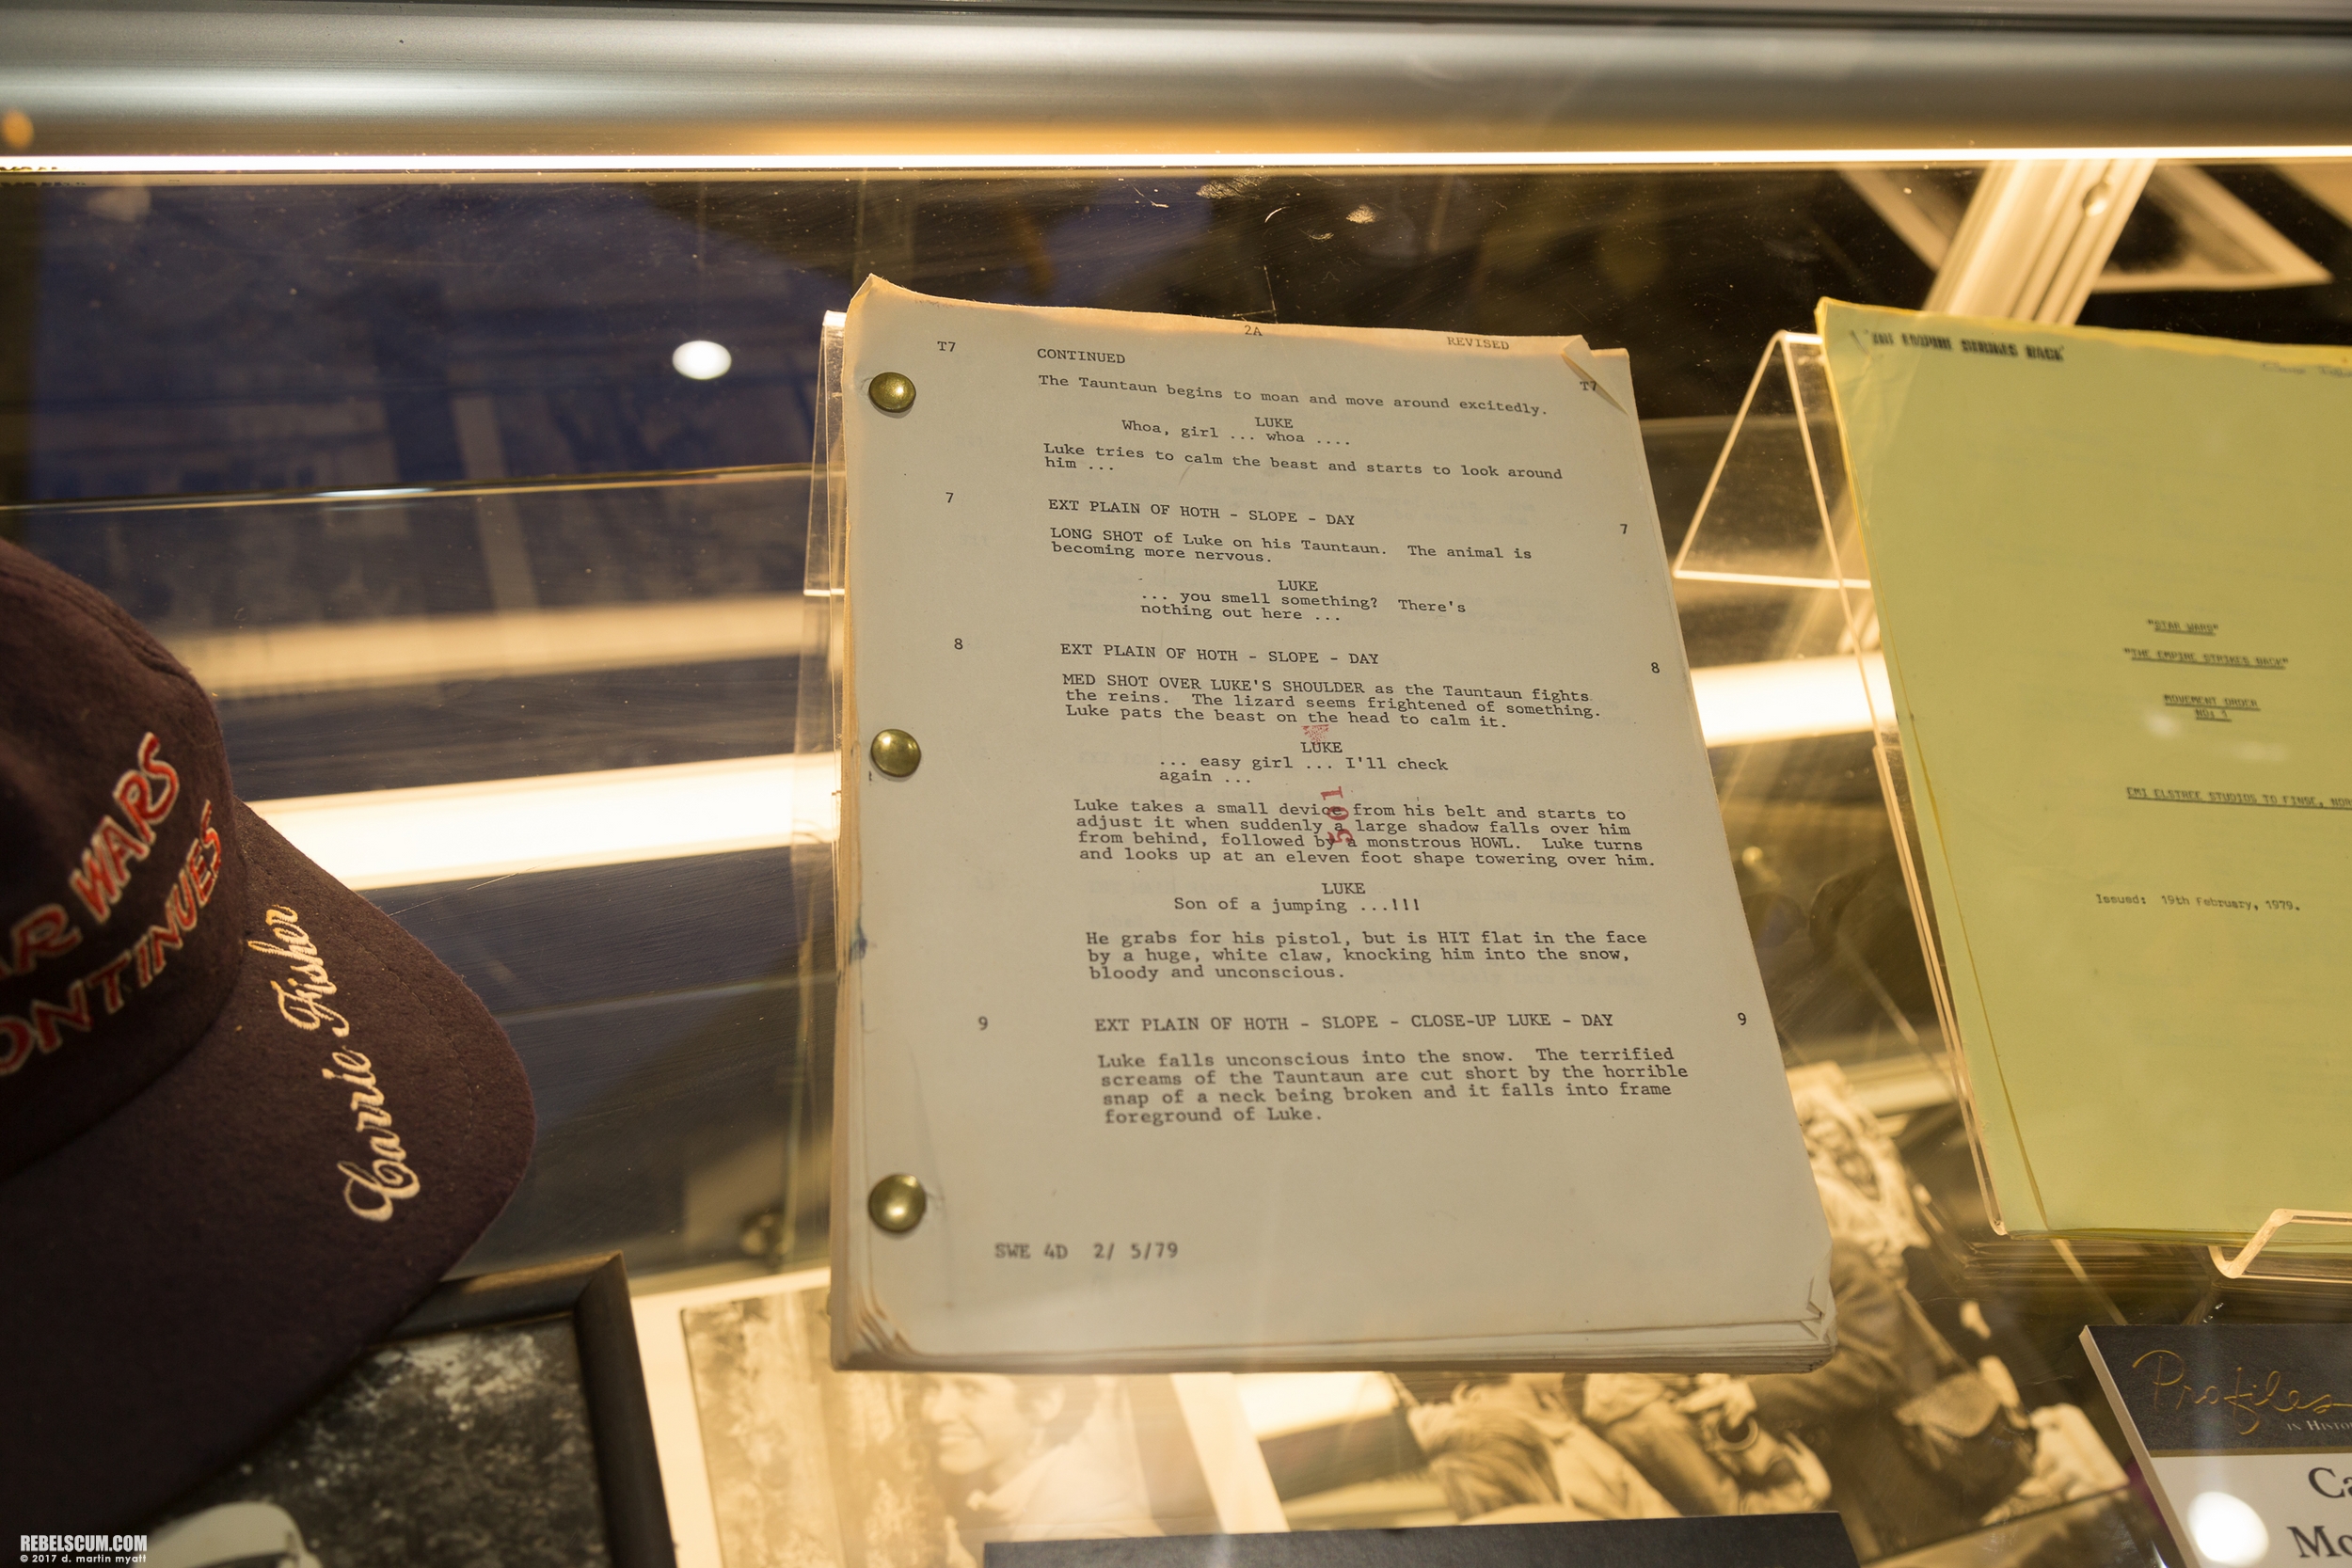 2A
REVISED
T7
CONTINUED
T7
The Tauntaun begins to moan and move around excitedly.
LUKE
Whoa, girl ... whoa ....
Luke tries to calm the beast and starts to look around
him ...
7
EXT PLAIN OF HOTH - SLOPE - DAY
7
LONG SHOT of Luke on his Tauntaun. The animal is
becoming more nervous.
LUKE
... you smell something? There's
nothing out here ...
8
EXT PLAIN OF HOTH - SLOPE - DAY
8
MED SHOT OVER LUKE'S SHOULDER as the Tauntaun fights
the reins. The lizard seems frightened of something.
Luke pats the beast on the head to calm it.
LUKE
... easy girl ... I'll check
again ...
Luke takes a small device from his belt and starts to
adjust it when suddenly a large shadow falls over him
from behind, followed by a monstrous HOWL. Luke turns
and looks up at an eleven foot shape towering over him.
LUKE
Son of a jumping ...!!!
He grabs for his pistol, but is HIT flat in the face
by a huge, white claw, knocking him into the snow,
bloody and unconscious.
9
EXT PLAIN OF HOTH - SLOPE - CLOSE-UP LUKE - DAY
9
Luke falls unconscious into the snow. The terrified
screams of the Tauntaun are cut short by the horrible
snap of a neck being broken and it falls into frame
foreground of Luke.
SWE 4D 2/ 5/79
105
AR WARS
ONTINUES
Carrie Fisher
THE EMPIRE STRIKES BACK
"STAR WARS"
"THE EMPIRE STRIKES BACK"
MOVEMENT ORDER
NO: 1
EMI ELSTREE STUDIOS TO FINSE, NOR
Issued: 19th February, 1979.
Profiles
IN HISTO
Ca
Mo
REBELSCUM.COM
© 2017 d. martin myatt